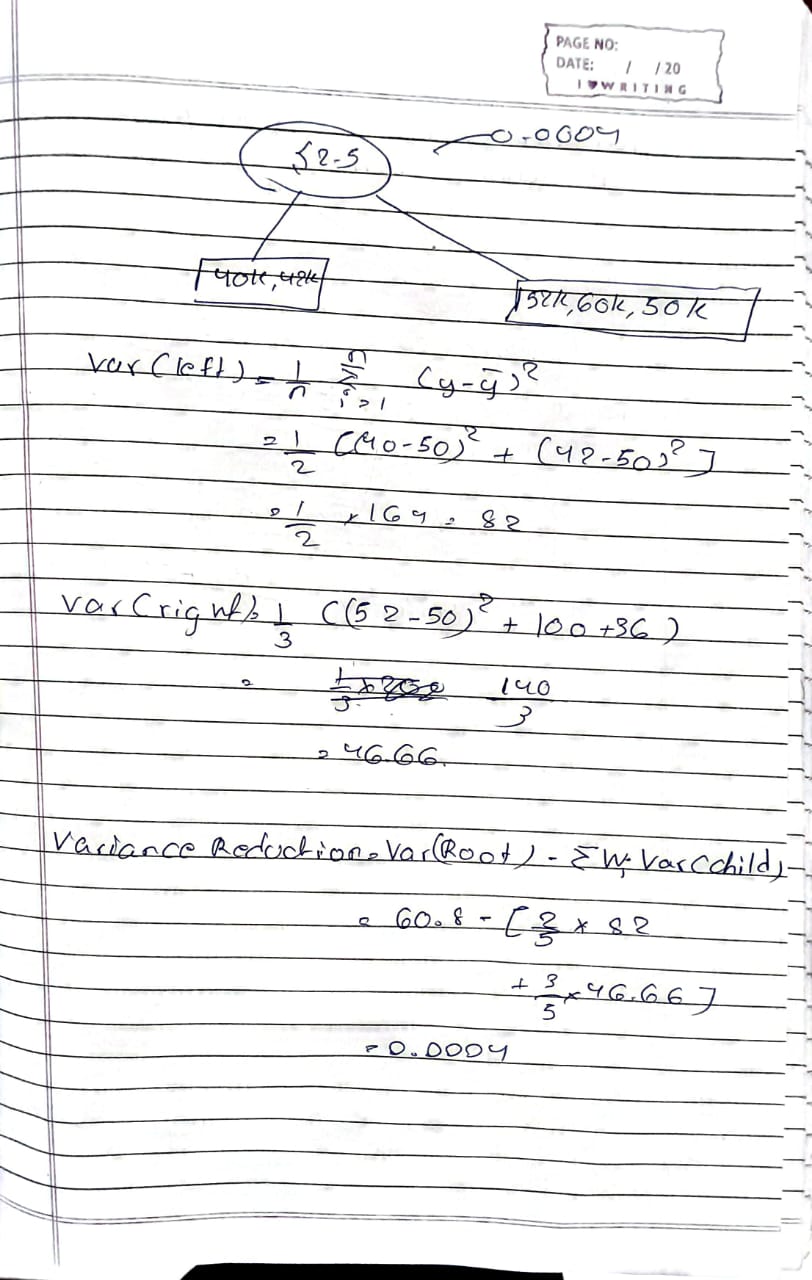 PAGE NO:
DATE: / /20
I ♥ WRITING
0.0004
≤2.5
40k, 42k
52k, 60k, 50k
Var(left) = 1/n Σ i=1 n (y-ȳ)²
= 1/2 [(40-50)² + (42-50)²]
= 1/2 × 164 = 82
Var(right) = 1/3 ((52-50)² + 100 + 36)
= 140/3
= 46.66.
Variance Reduction = Var(Root) - Σ Wi Var(child)
= 60.8 - [2/5 × 82
+ 3/5 × 46.66]
= 0.0004